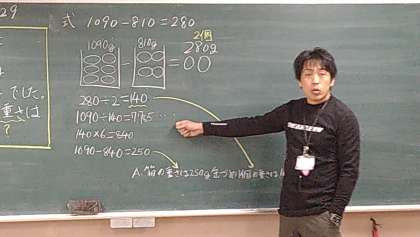 29
式 1090-810=280
2個
1090g
810g
280g
- =
でした
重さは
?
280÷2=140
1090÷140=7…
140×6=840
1090-840=250
A. 箱の重さは250g 缶づめ1個の重さは